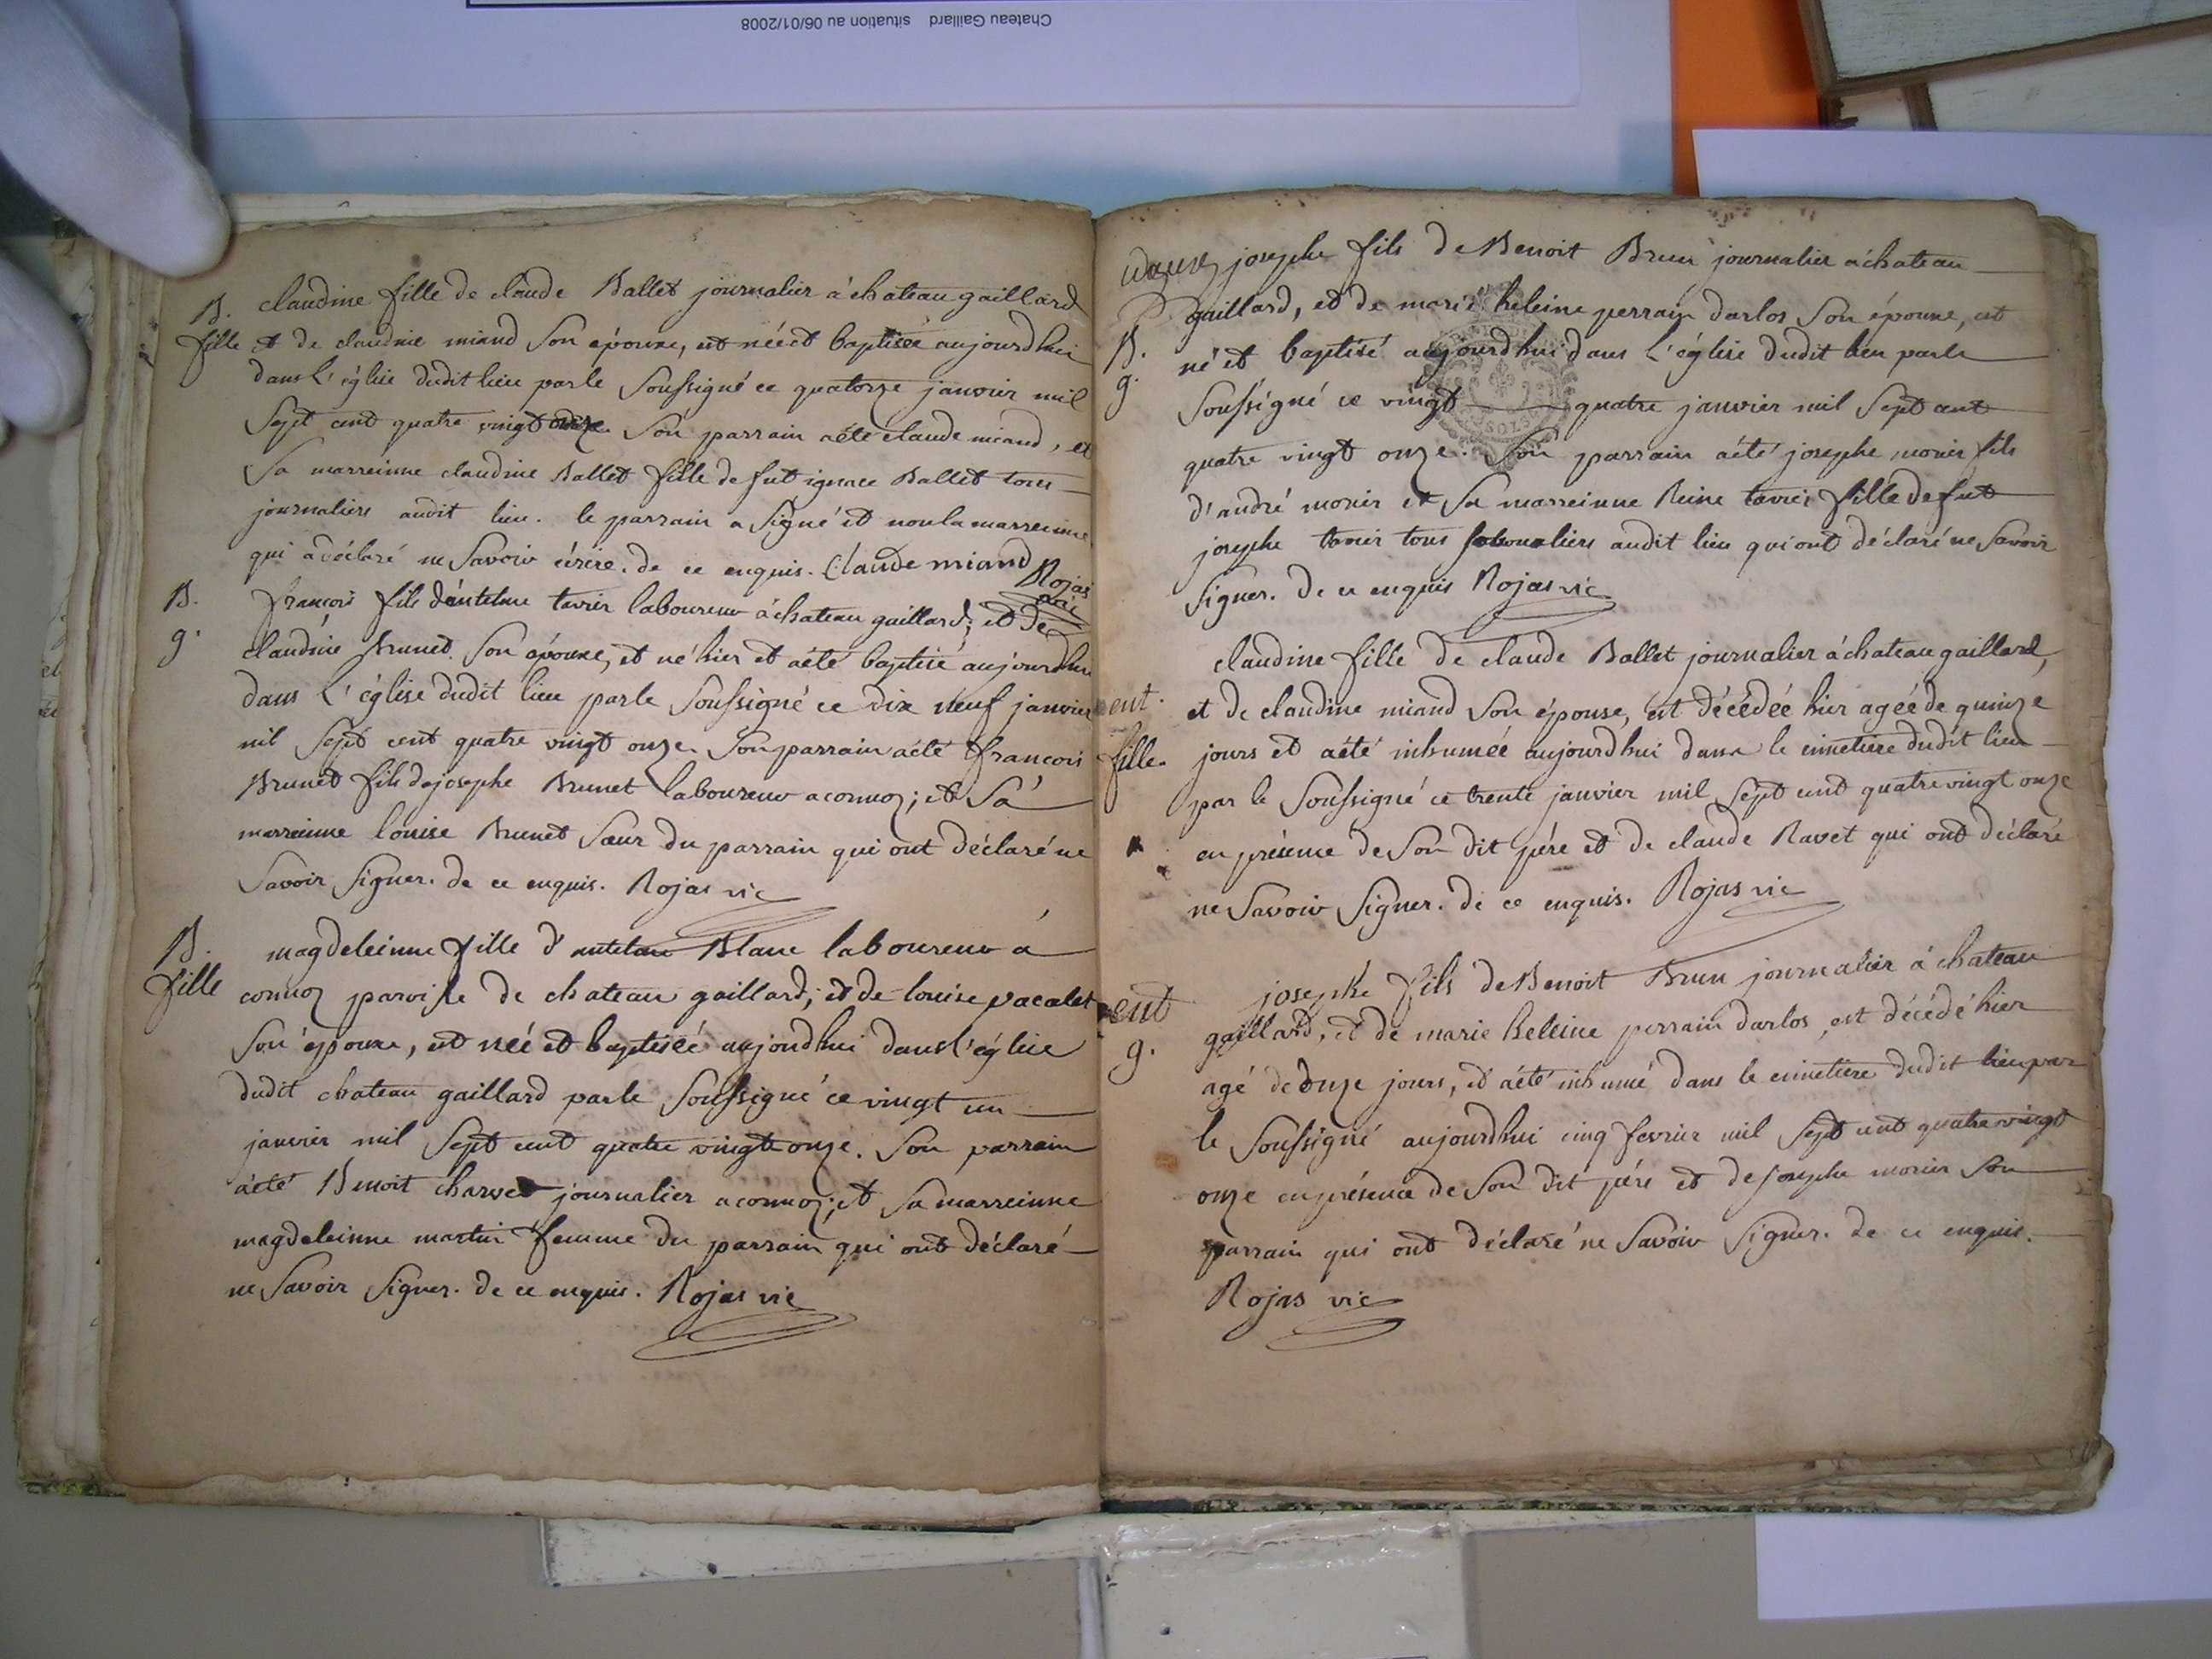 Chateau Gaillard situation au 06/01/2008
B. claudine fille de claude Ballet journalier à chateau gaillard
fille et de claudine miand son épouse, est née et baptisée aujourdhui
dans l'église dudit lieu par le soussigné ce quatorze janvier mil
sept cent quatre vingt onze. son parrain a été claude miand, et
sa marreinne claudine Ballet fille de fut ignace Ballet tous
journaliers audit lieu. le parrain a signé et non la marreinne
qui a déclaré ne savoir écrire. de ce enquis. Claude miand
Rojas
vic
B. françois fils d'antelme tavier laboureur à chateau gaillard, et de
g. claudine Brunet son épouse, et né hier et a été baptisé aujourdhui
dans l'église dudit lieu par le soussigné ce dix neuf janvier
mil sept cent quatre vingt onze. son parrain a été françois
Brunet fils de josephe Brunet laboureur a cormoz; et sa
marreinne louise Brunet sœur du parrain qui ont déclaré ne
savoir signer. de ce enquis. Rojas vic
B. magdeleinne fille d'antelme Blanc laboureur à
fille cormoz paroisse de chateau gaillard; et de louise vacalet
son épouse, est née et baptisée aujourdhui dans l'église
dudit chateau gaillard par le soussigné ce vingt un
janvier mil sept cent quatre vingt onze. son parrain
a été Benoit charvet journalier a cormoz; et sa marreinne
magdeleinne martin femme du parrain qui ont déclaré
ne savoir signer. de ce enquis. Rojas vic
josephe fils de Benoit Brun journalier a chateau
gaillard, et de marie heleine perrain darlos son épouse, est
B. né et baptisé aujourdhui dans l'église dudit lieu par le
g. soussigné ce vingt quatre janvier mil sept cent
quatre vingt onze. son parrain a été josephe monier fils
d'andré monier et sa marreinne Reine tavier fille de fut
josephe tavier tous journaliers audit lieu qui ont déclaré ne savoir
signer. de ce enquis Rojas vic
claudine fille de claude Ballet journalier à chateau gaillard,
ent. et de claudine miand son épouse, est décédée hier agée de quinze
fille. jours et a été inhumée aujourdhui dans le cimetiere dudit lieu
par le soussigné ce trente janvier mil sept cent quatre vingt onze
en présence de son dit pére et de claude Ravet qui ont déclaré
ne savoir signer. de ce enquis. Rojas vic
josephe fils de Benoit Brun journalier à chateau
ent gaillard, et de marie heleine perrain darlos, est décédé hier
g. agé de onze jours, et a été inhumé dans le cimetiere dudit lieu par
le soussigné aujourdhui cinq fevrier mil sept cent quatre vingt
onze en présence de son dit pére et de josephe monier son
parrain qui ont déclaré ne savoir signer. de ce enquis.
Rojas vic